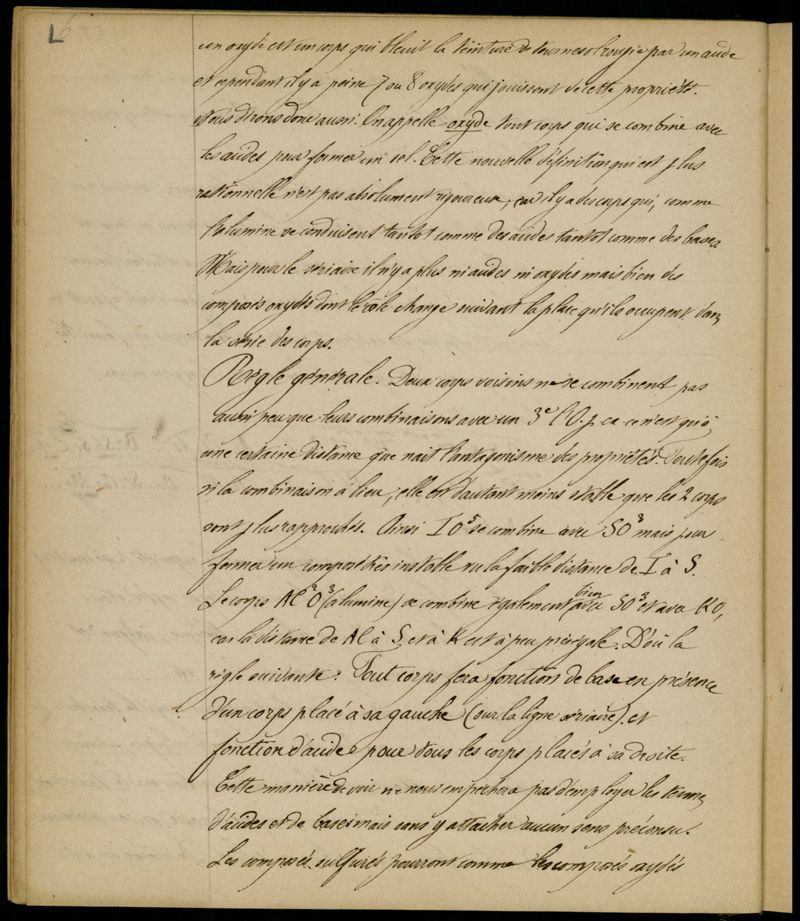 6
un oxyde est un corps qui bleuit la teinture de tournesol rougie par un acide
et cependant il y a peine 7 ou 8 oxydes qui jouissent de cette propriété.
Nous dirons donc aussi: On appelle oxyde tout corps qui se combine avec
les acides pour former un sel. Cette nouvelle définition qui est plus
rationnelle n'est pas absolument rigoureuse, car il y a des corps qui, comme
l'alumine se conduisent tantot comme des acides tantot comme des bases
Mais pour le sériaire il n'y a plus ni acides ni oxydes mais bien des
composés oxydés dont le role change suivant la place qu'ils occupent dans
la série des corps.
Règle générale. Deux corps voisins ne se combinent pas
aussi peu que leurs combinaisons avec un 3e (O. p. ce n'est qu'à
une certaine distance que nait l'antagonisme des propriétés. Toutefois
si la combinaison a lieu, elle est d'autant moins stable que les 2 corps
sont plus rapprochés. Ainsi IO5 se combine avec SO3 mais pour
former un composé très instable vu la faible distance de I à S.
Le corps Al2O3 (alumine) se combine également bien avec SO3 et avec KO,
car la distance de Al à S et à K est à peu près égale. D'où la
règle suivante: Tout corps fera fonction de base en présence
d'un corps placé à sa gauche (sur la ligne sériaire) et
fonction d'acide pour tous les corps placés à sa droite.
Cette manière de voir ne nous empechera pas d'employer les termes
d'acides et de bases mais sans y attacher aucun sens préconçu.
Les composés sulfurés pourront comme les composés oxydés